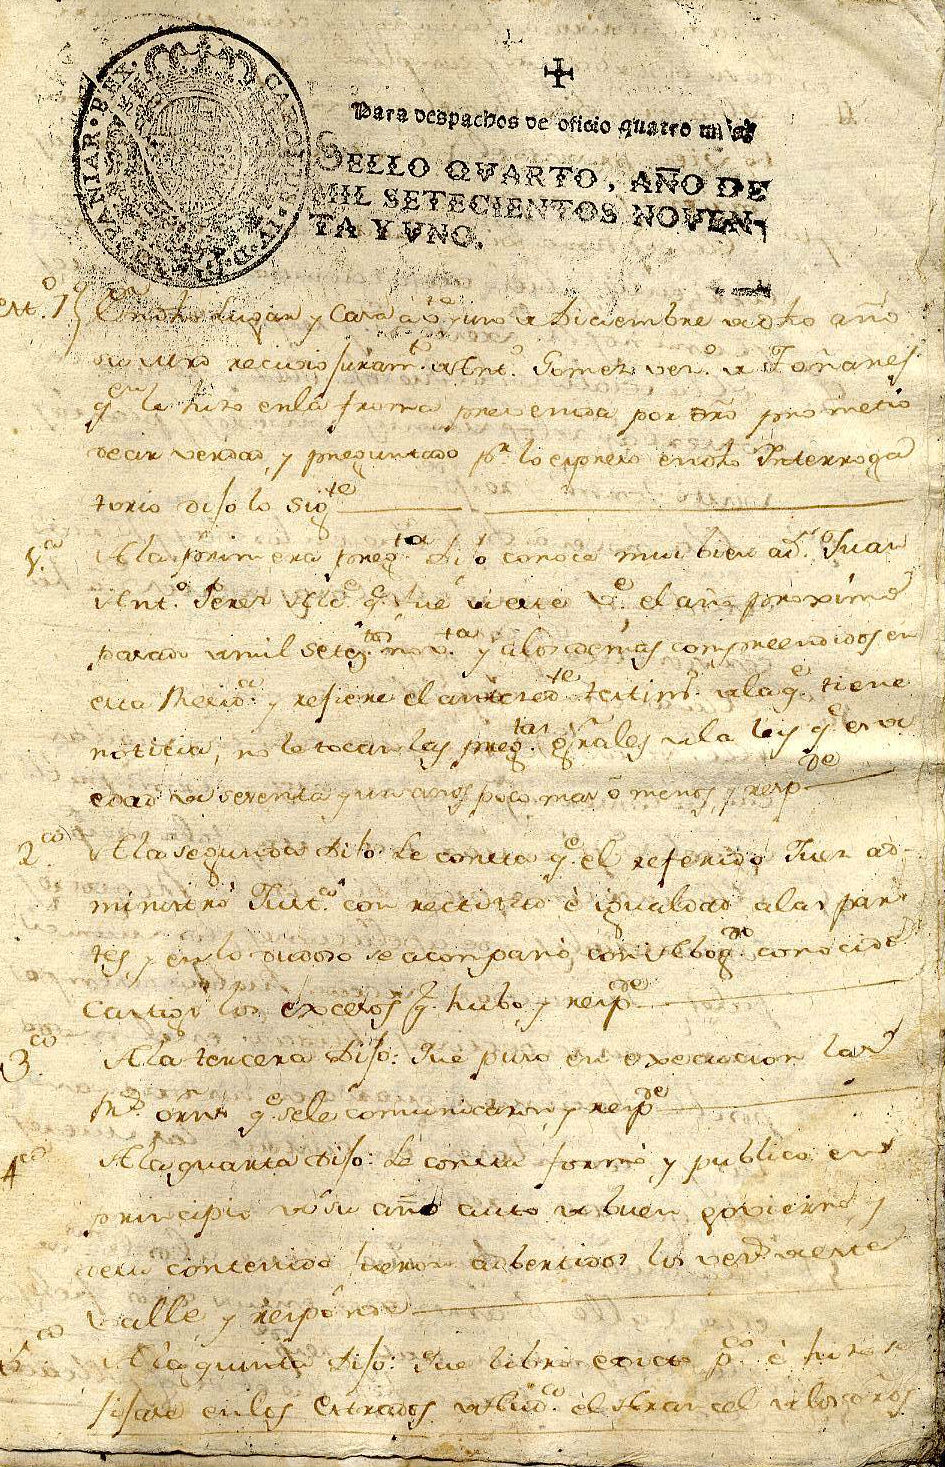 CAROLUS IV D G HISPANIAR REX
Para despachos de oficio quatro mrs
SELLO QVARTO, AÑO DE
MIL SETECIENTOS NOVEN-
TA Y VNO.
lugar y Casa Diciembre de dho año
su mrd recivio juramto. Anto. Gomez vezo. de
qn. le hizo en la forma prevenida por dro prometio
decir verdad, y preguntado pr. lo expreso en dho Interroga
torio dijo lo sigte
1.a A la primera pregta. Dijo conoce mui bien a Dn. Juan
Anto. Perez qe. fue de este Ve. el año proximo
pasado de mil setecs. nova. y a los demas compreendidos en
esta y refiere el antecedte testimo. de la qe. tiene
noticia, no le tocan las pregtas. gñrales de la ley qe. es de
edad de sesenta y un años poco mas ò menos, y respde
2.a A la segunda Dijo: Le consta qe. el referido Juez ad-
ministrò Justca. con rectitud è igualdad a las par-
tes y en lo dudoso se acompañò con Abogdo. conocido
Castigò los excesos q. hubo, y respde
3.a A la tercera Dijo: Que puso en execucion las
Rs. ordns qe. se le comunicaron, y respde
4.a A la quarta Dijo: Le consta formò y publico en el
principio de su año auto de buen govierno, y
de su contenido fueron adbertidos los vezs. de este
Valle, y responde
5.a A la quinta Dijo: Que libro edicto pa. è hizo se
fijase en los Estrados de Audca. el Aranzel de los dros